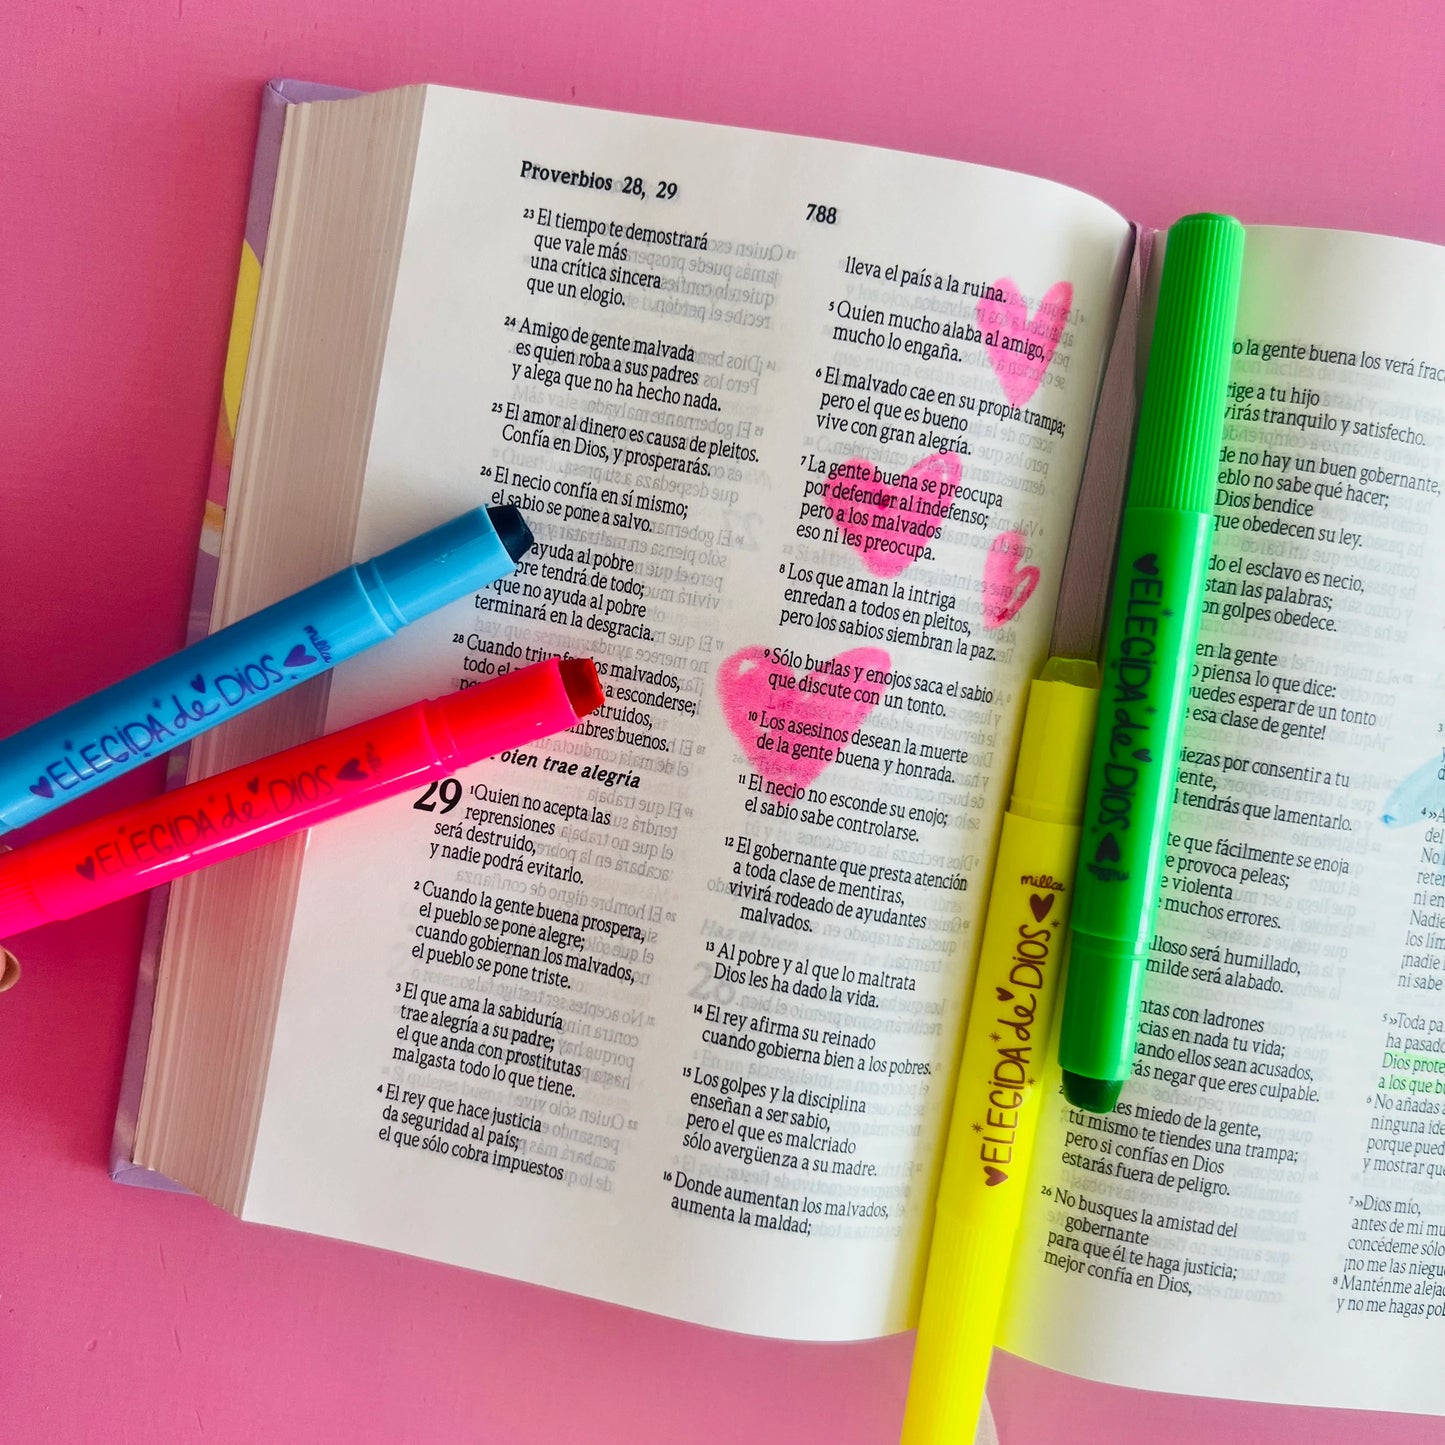 Proverbios 28, 29
788
23 El tiempo te demostrará
que vale más
una crítica sincera
que un elogio.
24 Amigo de gente malvada
es quien roba a sus padres
y alega que no ha hecho nada.
25 El amor al dinero es causa de pleitos.
Confía en Dios, y prosperarás.
26 El necio confía en sí mismo;
el sabio se pone a salvo.
ayuda al pobre
tendrá de todo;
que no ayuda al pobre
terminará en la desgracia.
28 Cuando los malvados,
todo el a esconderse;
buenos.
trae alegría
29
1 Quien no acepta las
reprensiones
será destruido,
y nadie podrá evitarlo.
2 Cuando la gente buena prospera,
el pueblo se pone alegre;
cuando gobiernan los malvados,
el pueblo se pone triste.
3 El que ama la sabiduría
trae alegría a su padre;
el que anda con prostitutas
malgasta todo lo que tiene.
4 El rey que hace justicia
da seguridad al país;
el que sólo cobra impuestos
lleva el país a la ruina.
5 Quien mucho alaba al amigo,
mucho lo engaña.
6 El malvado cae en su propia trampa;
pero el que es bueno
vive con gran alegría.
7 La gente buena se preocupa
por defender al indefenso;
pero a los malvados
eso ni les preocupa.
8 Los que aman la intriga
enredan a todos en pleitos,
pero los sabios siembran la paz.
9 Sólo burlas y enojos saca el sabio
que discute con un tonto.
10 Los asesinos desean la muerte
de la gente buena y honrada.
11 El necio no esconde su enojo;
el sabio sabe controlarse.
12 El gobernante que presta atención
a toda clase de mentiras,
vivirá rodeado de ayudantes
malvados.
13 Al pobre y al que lo maltrata
Dios les ha dado la vida.
14 El rey afirma su reinado
cuando gobierna bien a los pobres.
15 Los golpes y la disciplina
enseñan a ser sabio,
pero el que es malcriado
sólo avergüenza a su madre.
16 Donde aumentan los malvados,
aumenta la maldad;
la gente buena los verá
a tu hijo
tranquilo y satisfecho.
de no hay un buen gobernante,
no sabe qué hacer;
Dios bendice
que obedecen su ley.
el esclavo es necio,
las palabras;
golpes obedece.
en la gente
piensa lo que dice:
esperar de un tonto
esa clase de gente!
por consentir a tu
tendrás que lamentarlo.
que fácilmente se enoja
provoca peleas;
violenta
muchos errores.
será humillado,
será alabado.
con ladrones
en nada tu vida;
ellos sean acusados,
negar que eres culpable.
miedo de la gente,
tú mismo te tiendes una trampa;
pero si confías en Dios
estarás fuera de peligro.
26 No busques la amistad del
gobernante
para que él te haga justicia;
mejor confía en Dios,
5 »Toda
ha
Dios
a los que
6 No añadas
ninguna
porque
y mostrar
7 »Dios mío,
antes de mi
concédeme sólo
¡no me las
8 Manténme
y no me hagas
ELEGIDA de DIOS
millca
ELEGIDA de DIOS
ELEGIDA de DIOS
millca
ELEGIDA de DIOS
millca